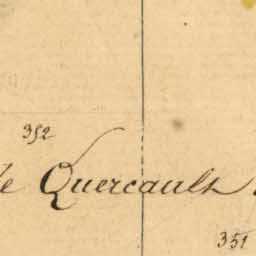 352
de Quercault
351